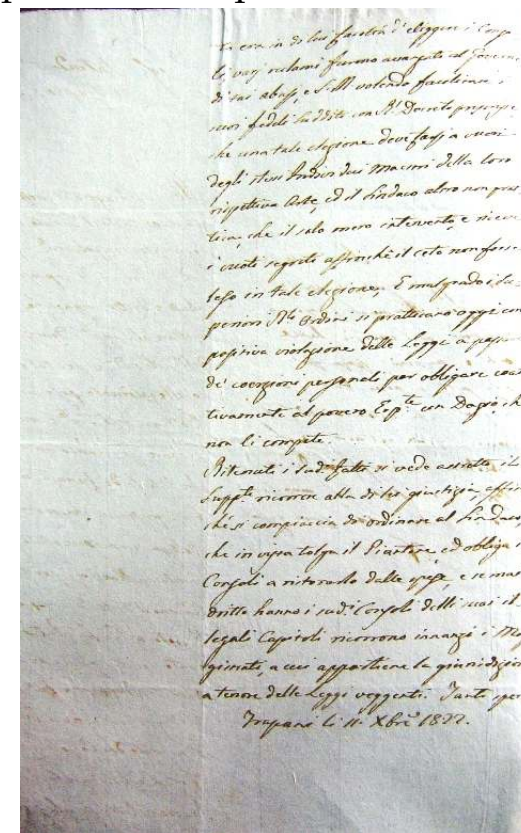 to era in di lui facoltà d'eleggere i Cons
le varj reclami furono avanzati al Governo
di tai abusi, e S. M. volendo facilitare i
suoi fedeli sudditi con Rl. Decreto prescrisse
che una tale elezione deve farsi a vuoti
degli stessi Individui Maestri della loro
rispettiva Arte, ed il Sindaco altro non pres
che il solo mero intervento, e riceve
i vuoti segreti affinché il ceto non fosse
leso in tale elezione. E malgrado i Su
periori Rli Ordini si pratticano oggi con
positiva violazione delle Leggi a
de' coerzioni personali, per obligare coat
tivamente al povero Espte un Dazio, ch
non li compete.
Ritenuti i sudi fatti si vede astretto il
Suppte ricorrere alla di lei giustizia, affin
ché si compiaccia di ordinare al Sindaco
che in vista tolga il Piantone, ed obliga i
Consoli a ristorarlo delle spese, e se mai
dritto hanno i sudi Consoli delli suoi il
legali Capitoli ricorrono innanzi i Ma
gistrati, a cui appartiene la giurisdizion
a tenore delle Leggi veggenti. Tanto sper
Trapani li 11. Xbre 1822.